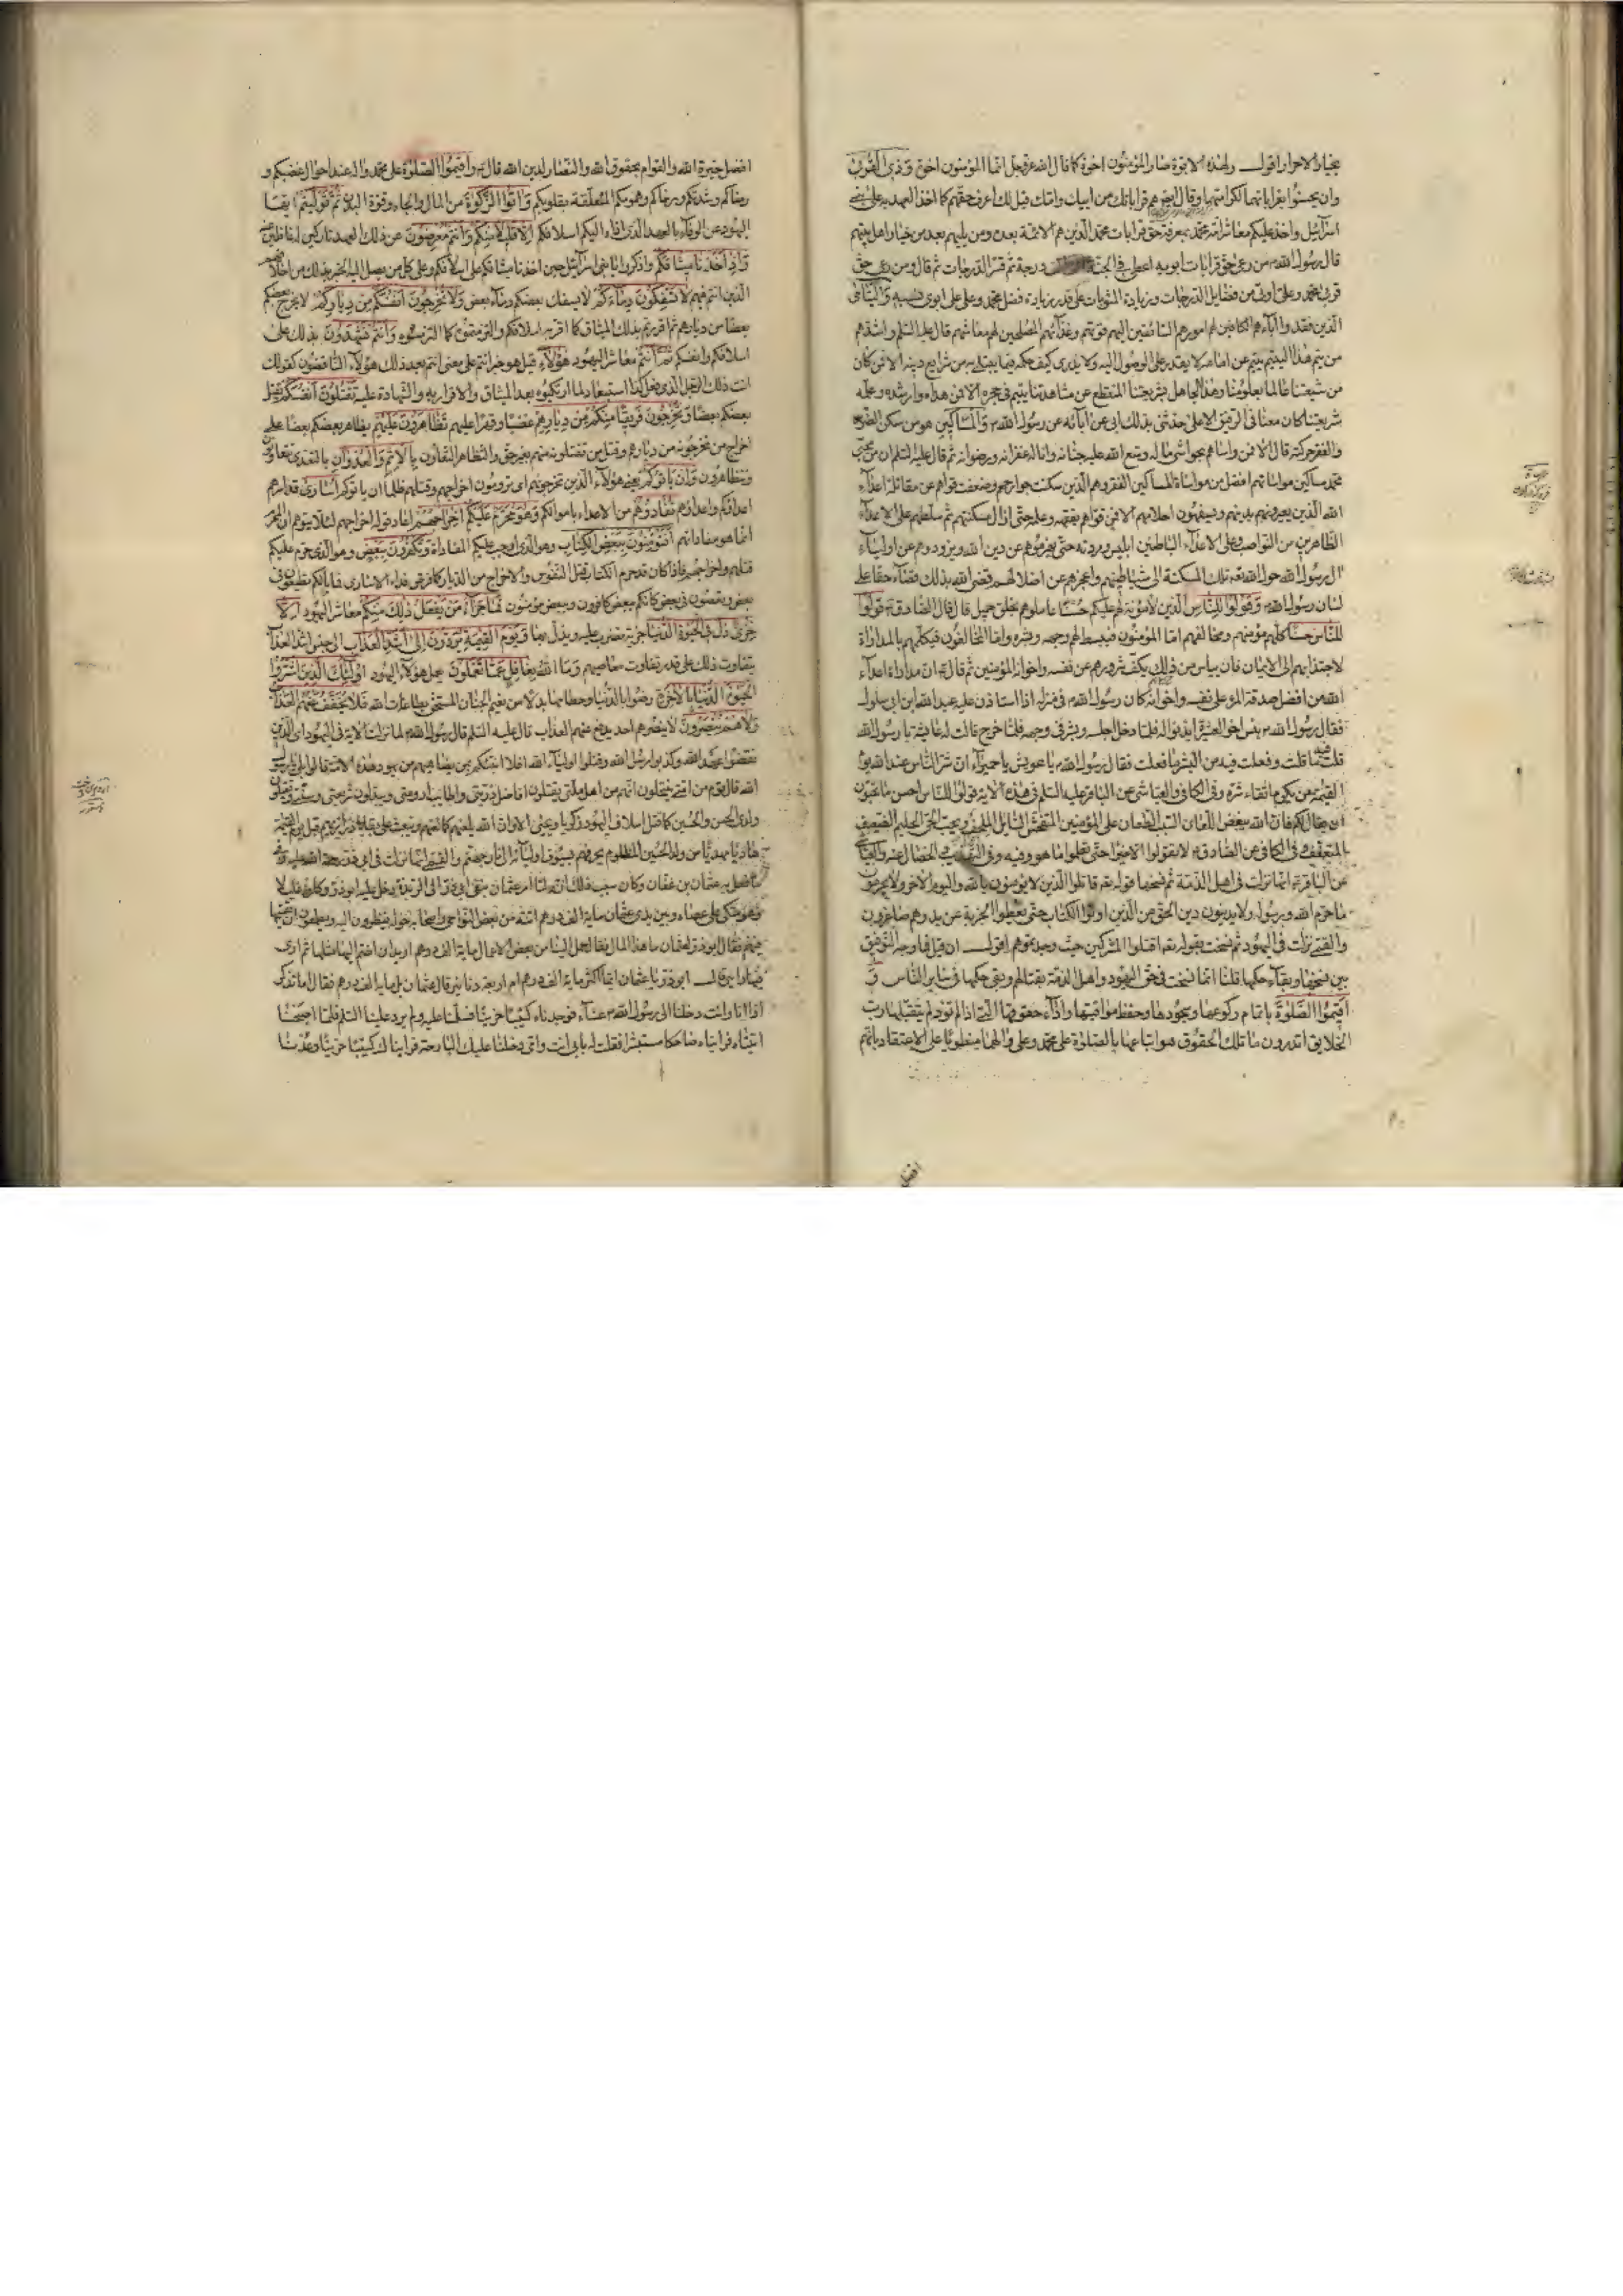 بخيار الاحرار اقول ولهذه الابوة صار المؤمنون اخوة كما قال الله عز وجل انما المؤمنون اخوة وَذِي الْقُرْبىٰ
وان يحسنوا بقراباتهما لكرامتهما وقال ايضا هم قراباتك من ابيك وامك قيل لك اعرف حقهم كما اخذ العهد به على بني
اسرائيل واخذ عليكم معاشر امة محمد بمعرفة حق قرابات محمد الذين هم الائمة بعده ومن يليهم بعد من خيار اهل دينهم
قال رسول الله ص من رعى حق قرابات ابويه اعطي في الجنة درجة ثم فسر الدرجات ثم قال ومن رعى حق
قربى محمد وعلي اوتي من فضايل الدرجات وزيادة المثوبات على قدر زيادة فضل محمد وعلي على ابوي نسبه وَالْيَتَامىٰ
الذين فقدوا آباءهم الكافين لهم امورهم السائقين اليهم قوتهم وغذاءهم المصلحين لهم معاشهم قال عليه السلم واشد من
من يتم هذا اليتيم يتيم عن امامه لا يقدر على الوصول اليه ولا يدري كيف حكمه فيما يبتلى به من شرايع دينه الا فمن كان
من شيعتنا عالما بعلومنا وهذا الجاهل بشريعتنا المنقطع عن مشاهدتنا يتيم في حجره الا فمن هداه وارشده وعلمه
شريعتنا كان معنا في الرفيق الاعلى حدثني بذلك ابي عن آبائه عن رسول الله ص وَالْمَسَاكِينِ هو من سكن الضر
والفقر حركته قال الا فمن واساهم بحواشي ماله وسع الله عليه جنانه واناله غفرانه ورضوانه ثم قال عليه السلم ان من محبي
محمد مساكين مواساتهم افضل من مواساة المساكين الفقر وهم الذين سكنت جوارحهم وضعفت قواهم عن مقاتلة اعداء
الله الذين يعيرونهم بدينهم ويسفهون احلامهم الا فمن قواهم بفقهه وعلمه حتى ازال مسكنتهم ثم سلطهم على الاعداء
الظاهرين من النواصب وعلى الاعداء الباطنين ابليس ومردته حتى يهزموهم عن دين الله ويذودوهم عن اولياء
آل رسول الله حول الله تعه تلك المسكنة الى شياطينهم واعجزهم عن اضلالهم قضى الله بذلك قضاء حقا على
لسان رسول الله ص وَقُولُوا لِلنَّاسِ الذين لا مؤنة لهم عليكم حُسْنًا عاملوهم بخلق جميل قال قال الصادق ع قولوا
للناس حسنا كلهم مؤمنهم ومخالفهم اما المؤمنون فيبسط لهم وجهه وبشره واما المخالفون فيكلمهم بالمداراة
لاجتذابهم الى الايمان فان ييأس من ذلك يكف شرورهم عن نفسه واخوانه المؤمنين ثم قال ع ان مداراة اعداء
الله من افضل صدقة المرء على نفسه واخوانه كان رسول الله ص في منزله اذا استاذن عليه عبد الله ابن ابي سلول
فقال رسول الله ص بئس اخو العشيرة ايذنوا له فلما دخل اجلسه وبشر في وجهه فلما خرج قالت له عايشة يا رسول الله
قلت فيه ما قلت وفعلت فيه من البشر ما فعلت فقال رسول الله ص يا عويش يا حميراء ان شر الناس عند الله يوم
القيمة من يكرم اتقاء شره وفي الكافي والعياشي عن الباقر عليه السلم في هذه الاية قولوا للناس احسن ما تحبون
ان يقال لكم فان الله يبغض اللعان السباب الطعان على المؤمنين المتفحش السائل الملحف ويحب الحيي الحليم الضعيف
المتعفف وفي الكافي عن الصادق ع لا تقولوا الا خيرا حتى تعلموا ما هو وفيه وفي التهذيب والخصال عنه والعياشي
عن الباقر ع انها نزلت في اهل الذمة ثم نسخها قوله تعه قاتلوا الذين لا يؤمنون بالله ولا باليوم الآخر ولا يحرمون
ما حرم الله ورسوله ولا يدينون دين الحق من الذين اوتوا الكتاب حتى يعطوا الجزية عن يد وهم صاغرون
والقمي نزلت في اليهود ثم نسخت بقوله تعه اقتلوا المشركين حيث وجدتموهم اقول ان قيل فما وجه التوفيق
بين نسخها وبقاء حكمها قلنا انما نسخت في حق اليهود واهل الذمة بقتالهم وبقي حكمها في ساير الناس وَ
اَقِيمُوا الصَّلٰوةَ باتمام ركوعها وسجودها وحفظ مواقيتها واداء حقوقها التي اذا لم تؤد لم يتقبلها رب
الخلايق اتدرون ما تلك الحقوق هو اتباعها بالصلوة على محمد وعلي وآلهما منطويا على الاعتقاد بانهم
افضل
افضل خيرة الله والقوام بحقوق الله والنصار لدين الله قال ع واقيموا الصلوة على محمد وآله عند احوال غضبكم و
رضاكم وشدتكم ورخاكم وهمومكم المتعلقة بقلوبكم وَآتُوا الزَّكٰوةَ من المال والجاه وقوة البدن ثُمَّ تَوَلَّيْتُمْ ايها
اليهود عن الوفاء بالعهد الذي اداه اليكم اسلافكم اِلَّا قَلِيلًا مِنْكُمْ وَاَنْتُمْ مُعْرِضُونَ عن ذلك العهد تاركين له غافلين عنه
وَاِذْ اَخَذْنَا مِيثَاقَكُمْ واذكروا يا بني اسرائيل حين اخذنا ميثاقكم على اسلافكم وعلى كل من يصل اليه الخبر بذلك من اخلافهم
الذين انتم منهم لَا تَسْفِكُونَ دِمَاءَكُمْ لا يسفك بعضكم دماء بعض وَلَا تُخْرِجُونَ اَنْفُسَكُمْ مِنْ دِيَارِكُمْ لا يخرج بعضكم
بعضا من ديارهم ثم اقررتم بذلك الميثاق كما اقر به اسلافكم والتزمتموه كما التزموه وَاَنْتُمْ تَشْهَدُونَ بذلك على
اسلافكم وانفسكم ثُمَّ اَنْتُمْ معاشر اليهود هٰؤُلَاءِ قيل هو خبر انتم على معنى انتم بعد ذلك هؤلاء الناقضون كقولك
انت ذلك الرجل الذي فعل كذا استبعادا لما ارتكبوه بعد الميثاق والاقرار به والشهادة عليه تَقْتُلُونَ اَنْفُسَكُمْ يقتل
بعضكم بعضا وَتُخْرِجُونَ فَرِيقًا مِنْكُمْ مِنْ دِيَارِهِمْ غضبا وقهرا عليهم تَظَاهَرُونَ عَلَيْهِمْ يظاهر بعضكم بعضا على
اخراج من تخرجونه من ديارهم وقتل من تقتلونه منهم بغير حق والتظاهر التعاون بِالْاِثْمِ وَالْعُدْوَانِ بالتعدي تتعاونون
وتتظاهرون وَاِنْ يَأْتُوكُمْ يعني هؤلاء الذين تخرجونهم اي ترومون اخراجهم وقتلهم ظلما ان ياتوكم اُسَارىٰ قد اسرهم
اعداؤكم واعداؤهم تُفَادُوهُمْ من الاعداء باموالكم وَهُوَ مُحَرَّمٌ عَلَيْكُمْ اِخْرَاجُهُمْ اعاد قوله اخراجهم لئلا يتوهم ان المحرم
انما هو مفاداتهم اَفَتُؤْمِنُونَ بِبَعْضِ الْكِتَابِ وهو الذي اوجب عليكم المفاداة وَتَكْفُرُونَ بِبَعْضٍ وهو الذي حرم عليكم
قتلهم واخراجهم فاذا كان قد حرم الكتاب قتل النفوس والاخراج من الديار كما فرض فداء الاسارى فما بالكم تطيعون في
بعض وتعصون في بعض كانكم ببعض كافرون وببعض مؤمنون فَمَا جَزَاءُ مَنْ يَفْعَلُ ذٰلِكَ مِنْكُمْ معاشر اليهود اِلَّا
خِزْيٌ ذل فِي الْحَيٰوةِ الدُّنْيَا جزية تضرب عليه ويذل بها وَيَوْمَ الْقِيٰمَةِ يُرَدُّونَ اِلىٰ اَشَدِّ الْعَذَابِ الى جنس اشد العذاب
يتفاوت ذلك على قدر تفاوت معاصيهم وَمَا اللهُ بِغَافِلٍ عَمَّا تَعْمَلُونَ يعمل هؤلاء اليهود اُولٰئِكَ الَّذِينَ اشْتَرَوُا
الْحَيٰوةَ الدُّنْيَا بِالْاٰخِرَةِ رضوا بالدنيا وحطامها بدلا من نعيم الجنان المستحق بطاعات الله فَلَا يُخَفَّفُ عَنْهُمُ الْعَذَابُ
وَلَا هُمْ يُنْصَرُونَ لا ينصرهم احد يدفع عنهم العذاب قال عليه السلم قال رسول الله ص لما نزلت الاية في اليهود اي الذين
نقضوا عهد الله وكذبوا رسل الله وقتلوا اولياء الله افلا انبئكم بمن يضاهيهم من يهود هذه الامة قالوا بلى يا رسول
الله قال قوم من امتي ينتحلون انهم من اهل ملتي يقتلون افاضل ذريتي واطايب ارومتي ويبدلون شريعتي وسنتي ويقتلون
ولدي الحسن والحسين كما قتل اسلاف اليهود زكريا ويحيى الا وان الله يلعنهم كما لعنهم ويبعث على بقايا ذراريهم قبل يوم القيمة
هاديا مهديا من ولد الحسين المظلوم يحرقهم بسيوف اوليائه الى نار جهنم والقمي انها نزلت في ابي ذر رحمة الله عليه وفيما
فعل به عثمان بن عفان وكان سبب ذلك انه لما امر عثمان بنفي ابي ذر الى الربذة دخل عليه ابو ذر وكان عليلا
وهو متكئ على عصاه وبين يدي عثمان ماية الف درهم اتته من بعض النواحي واصحابه حوله ينظرون اليه ويطمعون ان يقسمها
فيهم فقال ابو ذر لعثمان ما هذا المال فقال حمل الينا من بعض الاعمال ماية الف درهم اريد ان اضم اليها مثلها ثم ارى
فيها رايي قال ابو ذر يا عثمان ايما اكثر ماية الف درهم ام اربعة دنانير قال عثمان بل ماية الف درهم فقال اما تذكر
اذ انا وانت دخلنا الى رسول الله ص عشاء فوجدناه كئيبا حزينا فسلمنا عليه ولم يرد علينا السلم فلما اصبحنا
اتيناه فرايناه ضاحكا مستبشرا فقلت له بابي انت وامي دخلنا عليك البارحة فرايناك كئيبا حزينا وعدنا